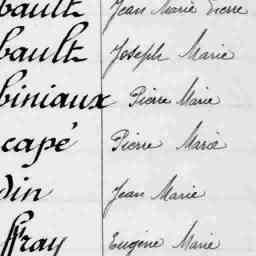 bault Jean Marie Pierre
bault Joseph Marie
biniaux Pierre Marie
capé Pierre Marie
din Jean Marie
ffray Eugène Marie